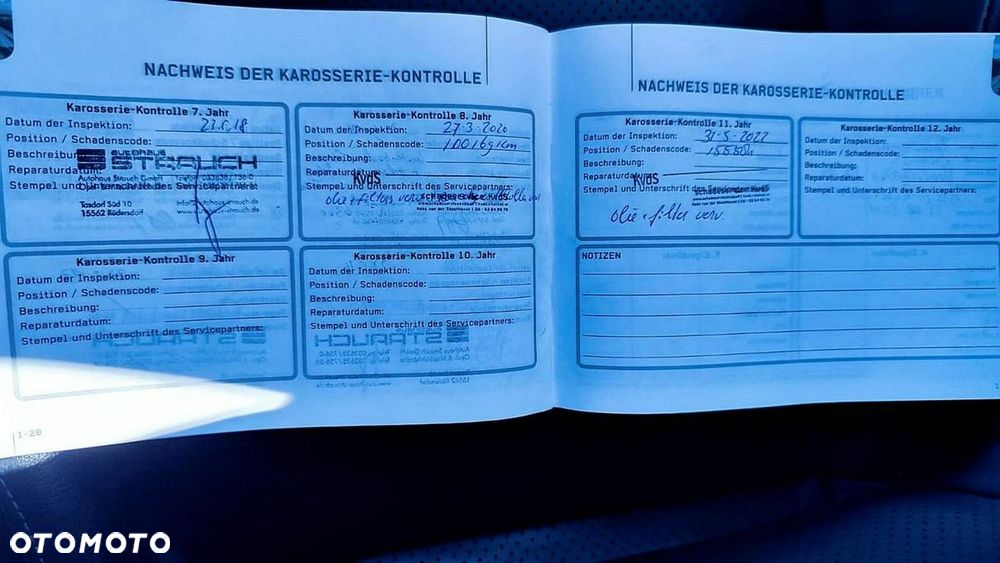 NACHWEIS DER KAROSSERIE-KONTROLLE
Karosserie-Kontrolle 7. Jahr
Datum der Inspektion:
Position / Schadenscode:
Beschreibung:
Reparaturdatum:
Stempel und
autohaus
STRAUCH
Autohaus Strauch GmbH Telefon 033638/756-0
Tasdorf Süd 10
15562 Rüdersdorf
Karosserie-Kontrolle 8. Jahr
Datum der Inspektion: 27-3-2020
Position / Schadenscode: 100169 km
Beschreibung:
Reparaturdatum:
KvdS
Stempel und Unterschrift des Servicepartners:
schadeservice KvdS
olie + filters verv.
Karosserie-Kontrolle 9. Jahr
Datum der Inspektion:
Position / Schadenscode:
Beschreibung:
Reparaturdatum:
Stempel und Unterschrift des Servicepartners:
Karosserie-Kontrolle 10. Jahr
Datum der Inspektion:
Position / Schadenscode:
Beschreibung:
Reparaturdatum:
Stempel und Unterschrift des Servicepartners:
1-28
NACHWEIS DER KAROSSERIE-KONTROLLE
Karosserie-Kontrolle 11. Jahr
Datum der Inspektion: 31-5-2022
Position / Schadenscode:
Beschreibung:
Reparaturdatum:
KvdS
Stempel und Unterschrift des Servicepartners:
schadeservice KvdS
olie + filter verv.
Karosserie-Kontrolle 12. Jahr
Datum der Inspektion:
Position / Schadenscode:
Beschreibung:
Reparaturdatum:
Stempel und Unterschrift des Servicepartners:
NOTIZEN
OTOMOTO